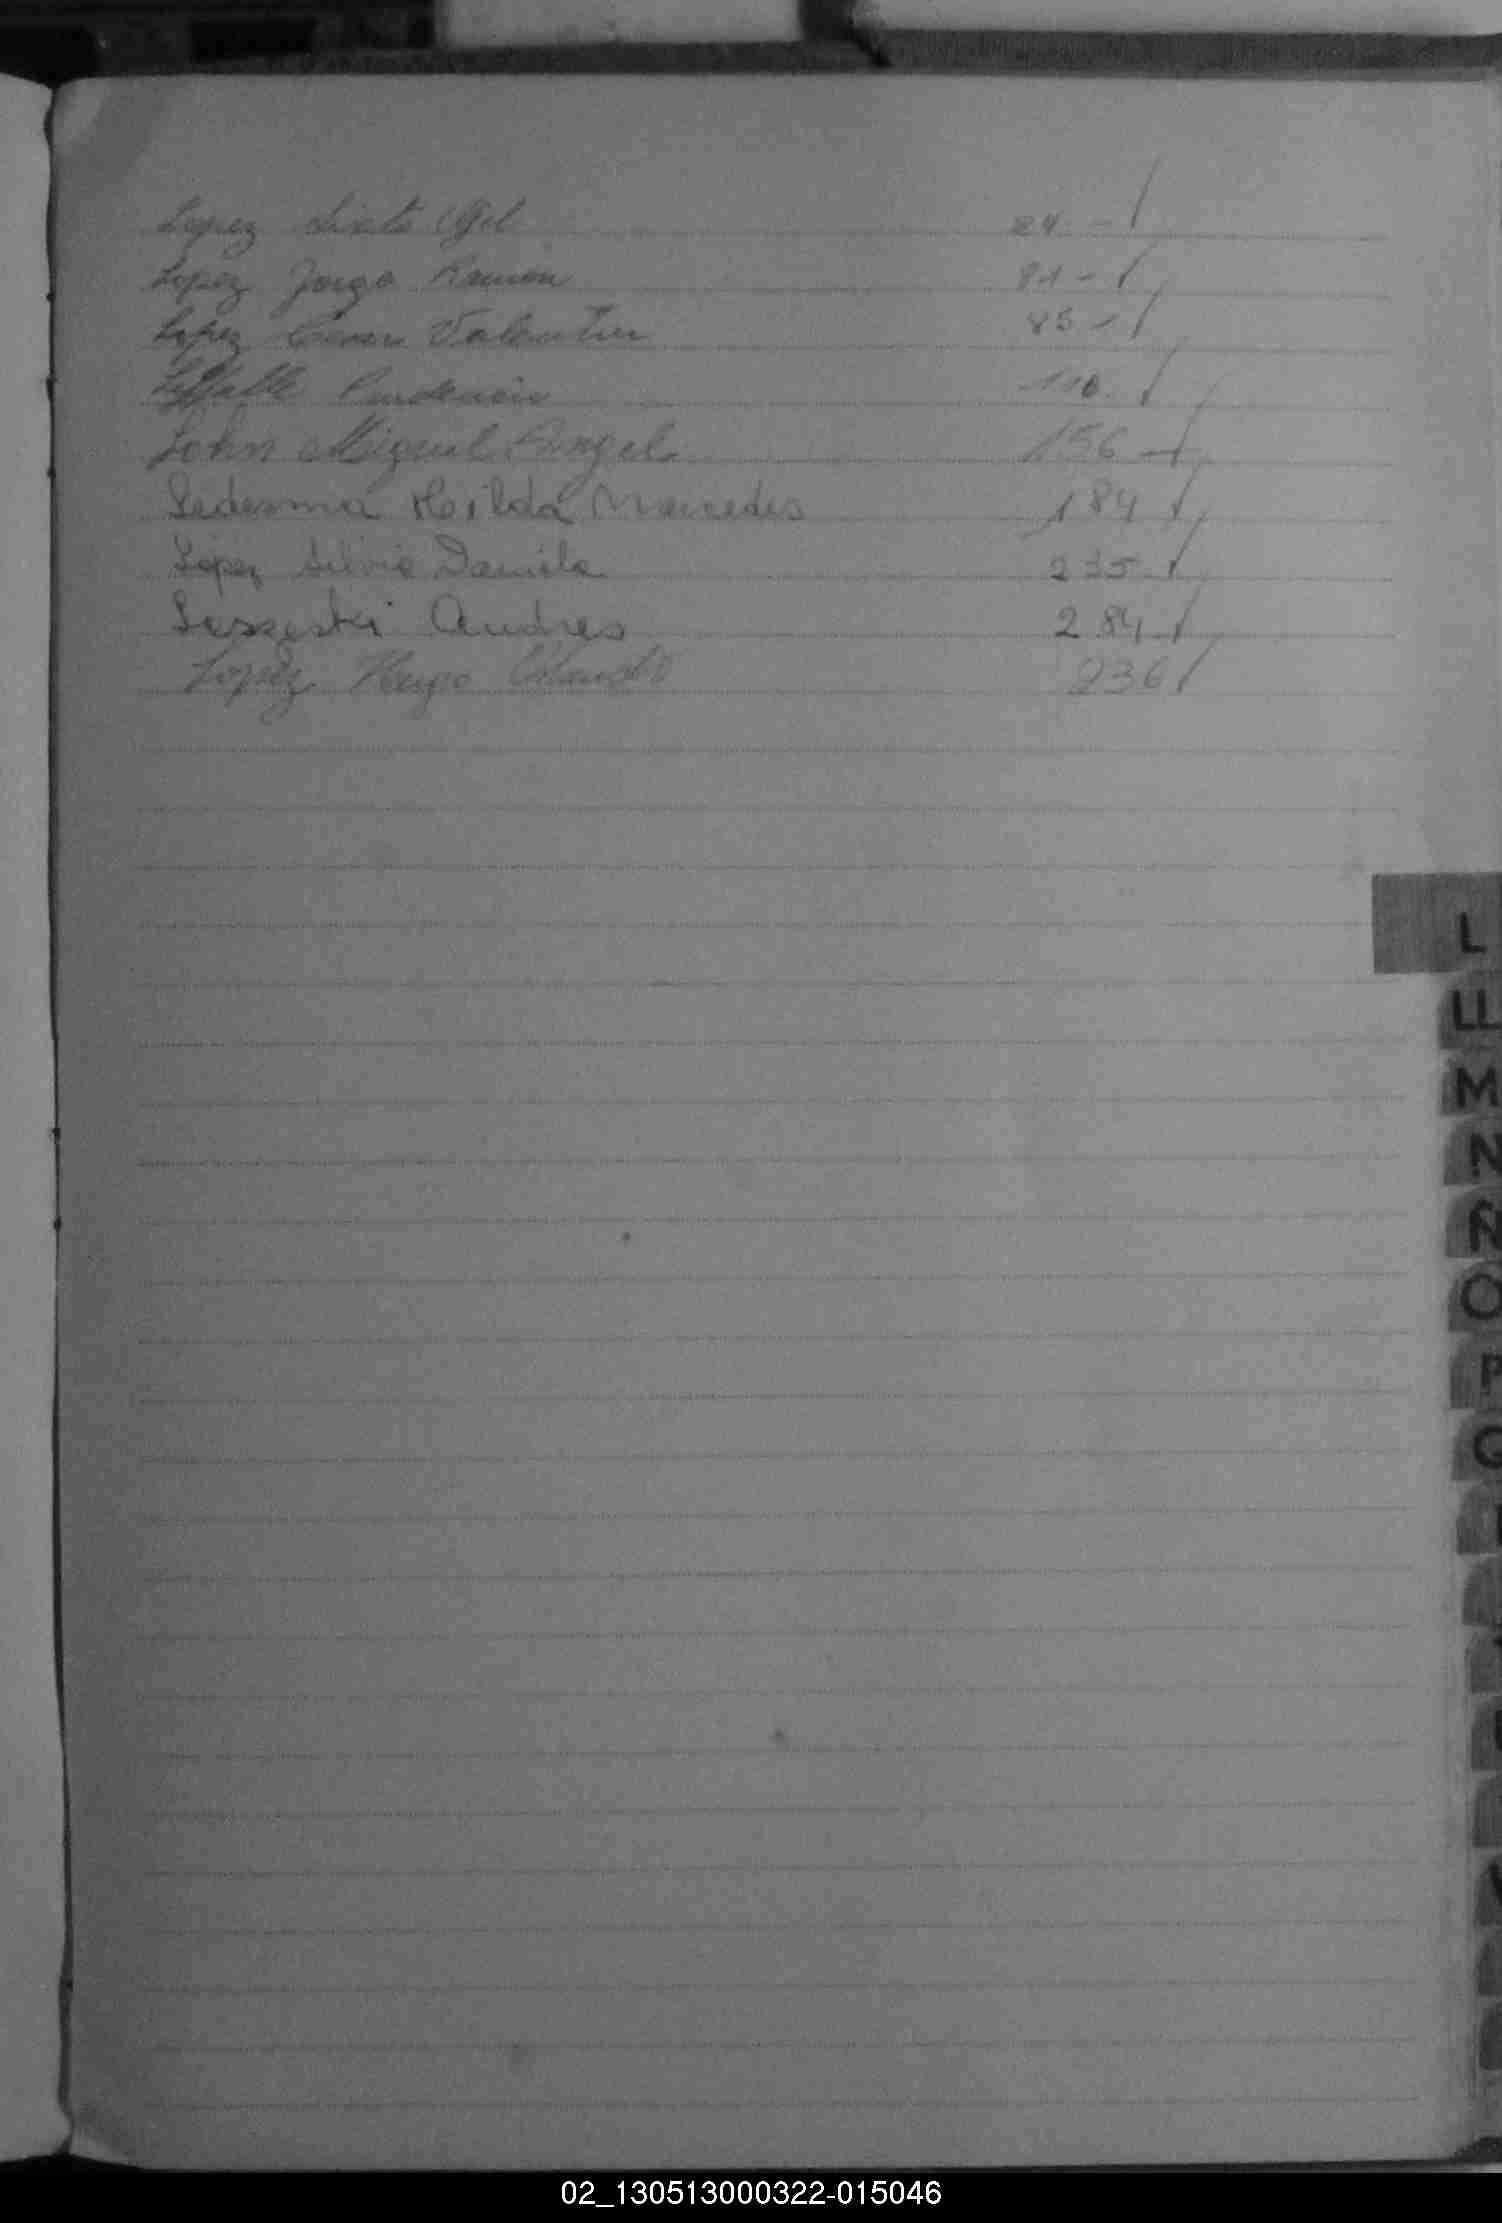 Lopez 24 -
Lopez Jorge Ramon 81 -
Lopez Cesar Valentin 83 -
110
Lohn Miguel Angel 156 -
Ledesma Hilda Mercedes 184
Lopez Silvia Daniela 235
Leszeski Andres 284
Lopez Hugo 236
L
LL
M
N
Ñ
O
P
Q
02_130513000322-015046